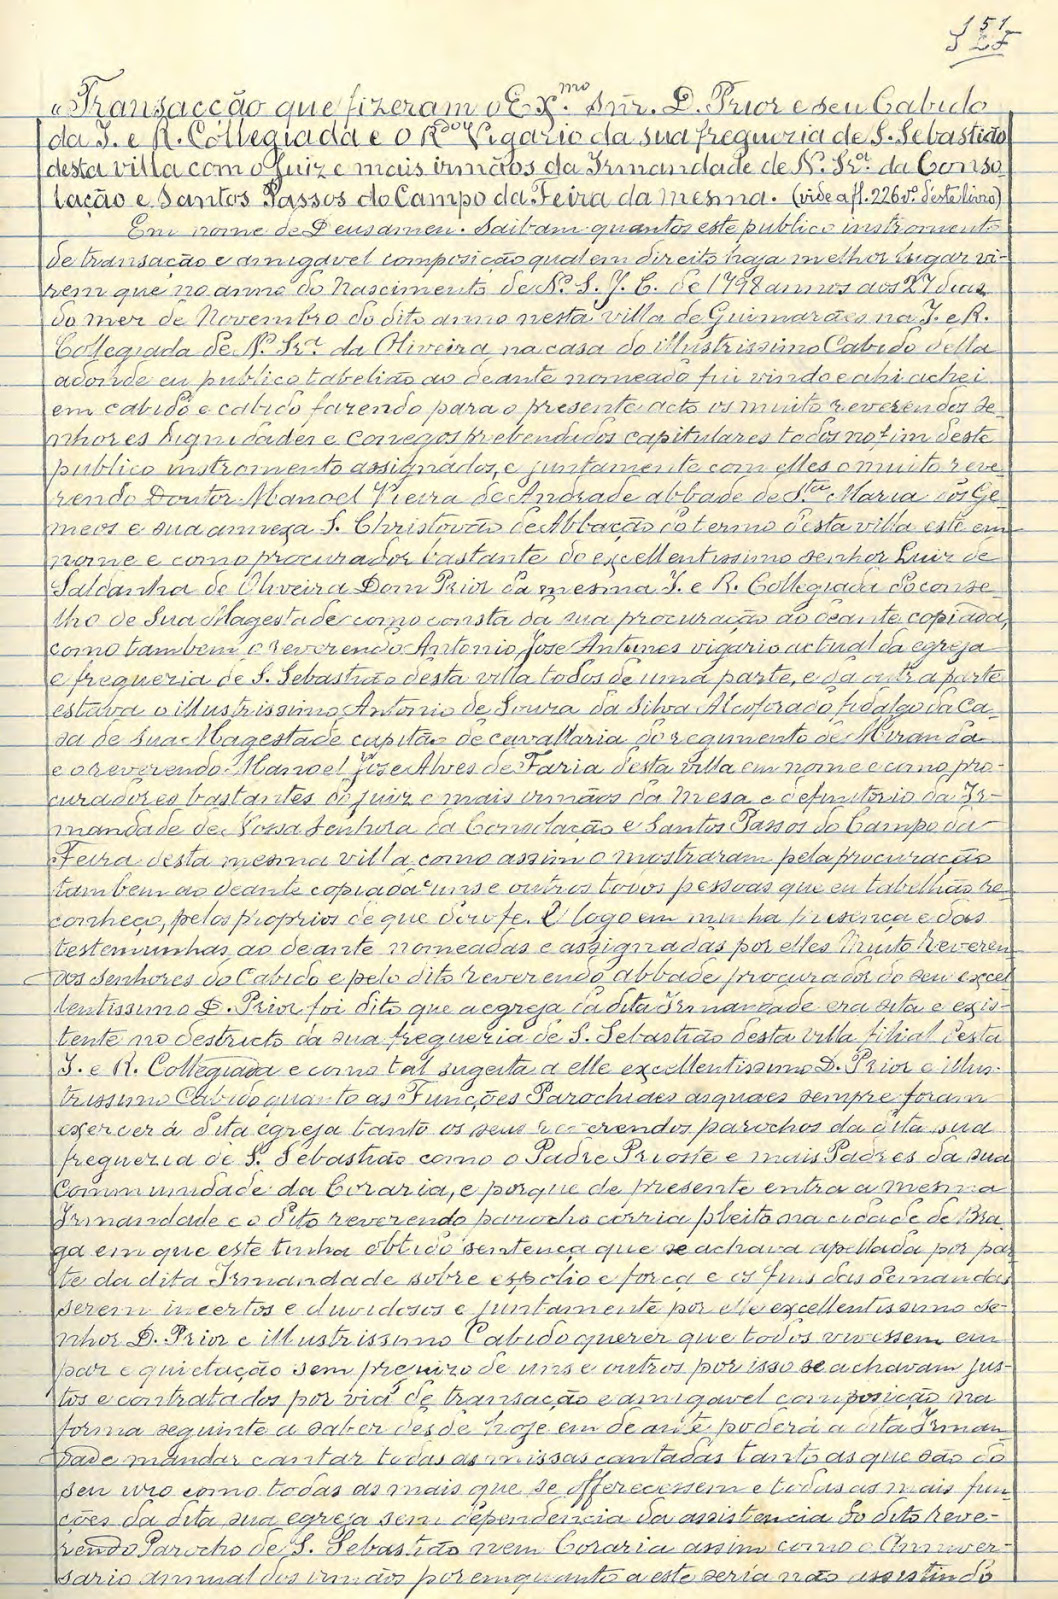 151
«Transacção que fizeram o Ex.mo Snr. D. Prior e seu Cabido
da I. e R. Collegiada e o Rdo Vigario da sua freguezia de S. Sebastião
desta villa com o Juiz e mais irmãos da Irmandade de N. Sra. da Conso
lação e Santos Passos do Campo da Feira da mesma. (vide a fl. 226 v. deste livro)
Em nome de Deus amen. Saibam quantos este publico instromento
de transação e amigavel composição qual em direito haja melhor lugar vi-
rem que no anno do Nascimento de N. S. J. C. de 1798 annos aos 27 dias
do mez de Novembro do dito anno nesta villa de Guimarães na I. e R.
Collegiada de N. Sra. da Oliveira na casa do illustrissimo Cabido della
adonde eu publico tabelião ao deante nomeado fui vindo e ahi achei
em cabido e cabido fazendo para o presente acto os muito reverendos se-
nhores dignidades e conegos prebendados capitulares todos no fim deste
publico instromento assignados, e juntamente com elles o muito reve-
rendo Doutor Manoel Vieira de Andrade abbade de Sta. Maria dos Ge-
meos e sua annexa S. Christovão de Abbação do termo desta villa este em
nome e como procurador bastante do excellentissimo senhor Luiz de
Saldanha de Oliveira Dom Prior da mesma I. e R. Collegiada do conse-
lho de Sua Magestade como consta da sua procuração ao deante copiada,
como tambem o reverendo Antonio Jose Antunes vigario actual da egreja
e freguezia de S. Sebastião desta villa todos de uma parte, e da outra parte
estava o illustrissimo Antonio de Souza da Silva Alcoforado fidalgo da Ca-
sa de Sua Magestade capitão de cavallaria do regimento de Miranda
e o reverendo Manoel Jose Alves de Faria desta villa em nome e como pro-
curadores bastantes do juiz e mais irmãos da Mesa e definitorio da Ir-
mandade de Nossa Senhora da Consolação e Santos Passos do Campo da
Feira desta mesma villa como assim o mostraram pela procuração
tambem ao deante copiada uns e outros todos pessoas que eu tabelião re-
conheço, pelos proprios de que dou fe. E logo em minha presença e das
testemunhas ao deante nomeadas e assignadas por elles Muito Reveren
dos Senhores do Cabido e pelo dito reverendo abbade procurador do seu excel
lentissimo D. Prior foi dito que a egreja da dita Irmandade era sita e exis-
tente no destricto da sua freguezia de S. Sebastião desta villa filial desta
I. e R. Collegiada e como tal sugeita a elle excellentissimo D. Prior e illus-
trissimo Cabido quanto as Funções Parochiaes as quaes sempre foram
exercer á dita egreja tanto os seus reverendos parochos da dita sua
freguezia de S. Sebastião como o Padre Prioste e mais Padres da sua
Communidade da Coraria, e porque de presente entra a mesma
Irmandade e o dito reverendo parocho corria pleito na cidade de Bra-
ga em que este tinha obtido sentença que se achava apellada por par
te da dita Irmandade sobre espolio e força e os fins das demandas
serem incertos e duvidosos e juntamente por elle excellentissimo se-
nhor D. Prior e illustrissimo Cabido querer que todos vivessem em
paz e quietação sem prejuizo de uns e outros por isso se achavam jus-
tos e contratados por via de transação e amigavel composição na
forma seguinte a saber desde hoje em deante poderá a dita Irman-
dade mandar cantar todas as missas cantadas tanto as que são do
seu uzo como todas as mais que se offerecessem e todas as mais fun-
ções da dita sua egreja sem dependencia da assistencia do dito reve-
rendo Parocho de S. Sebastião nem Coraria assim como o Anniver-
sario annual dos irmãos por emquanto a este seria não assistindo